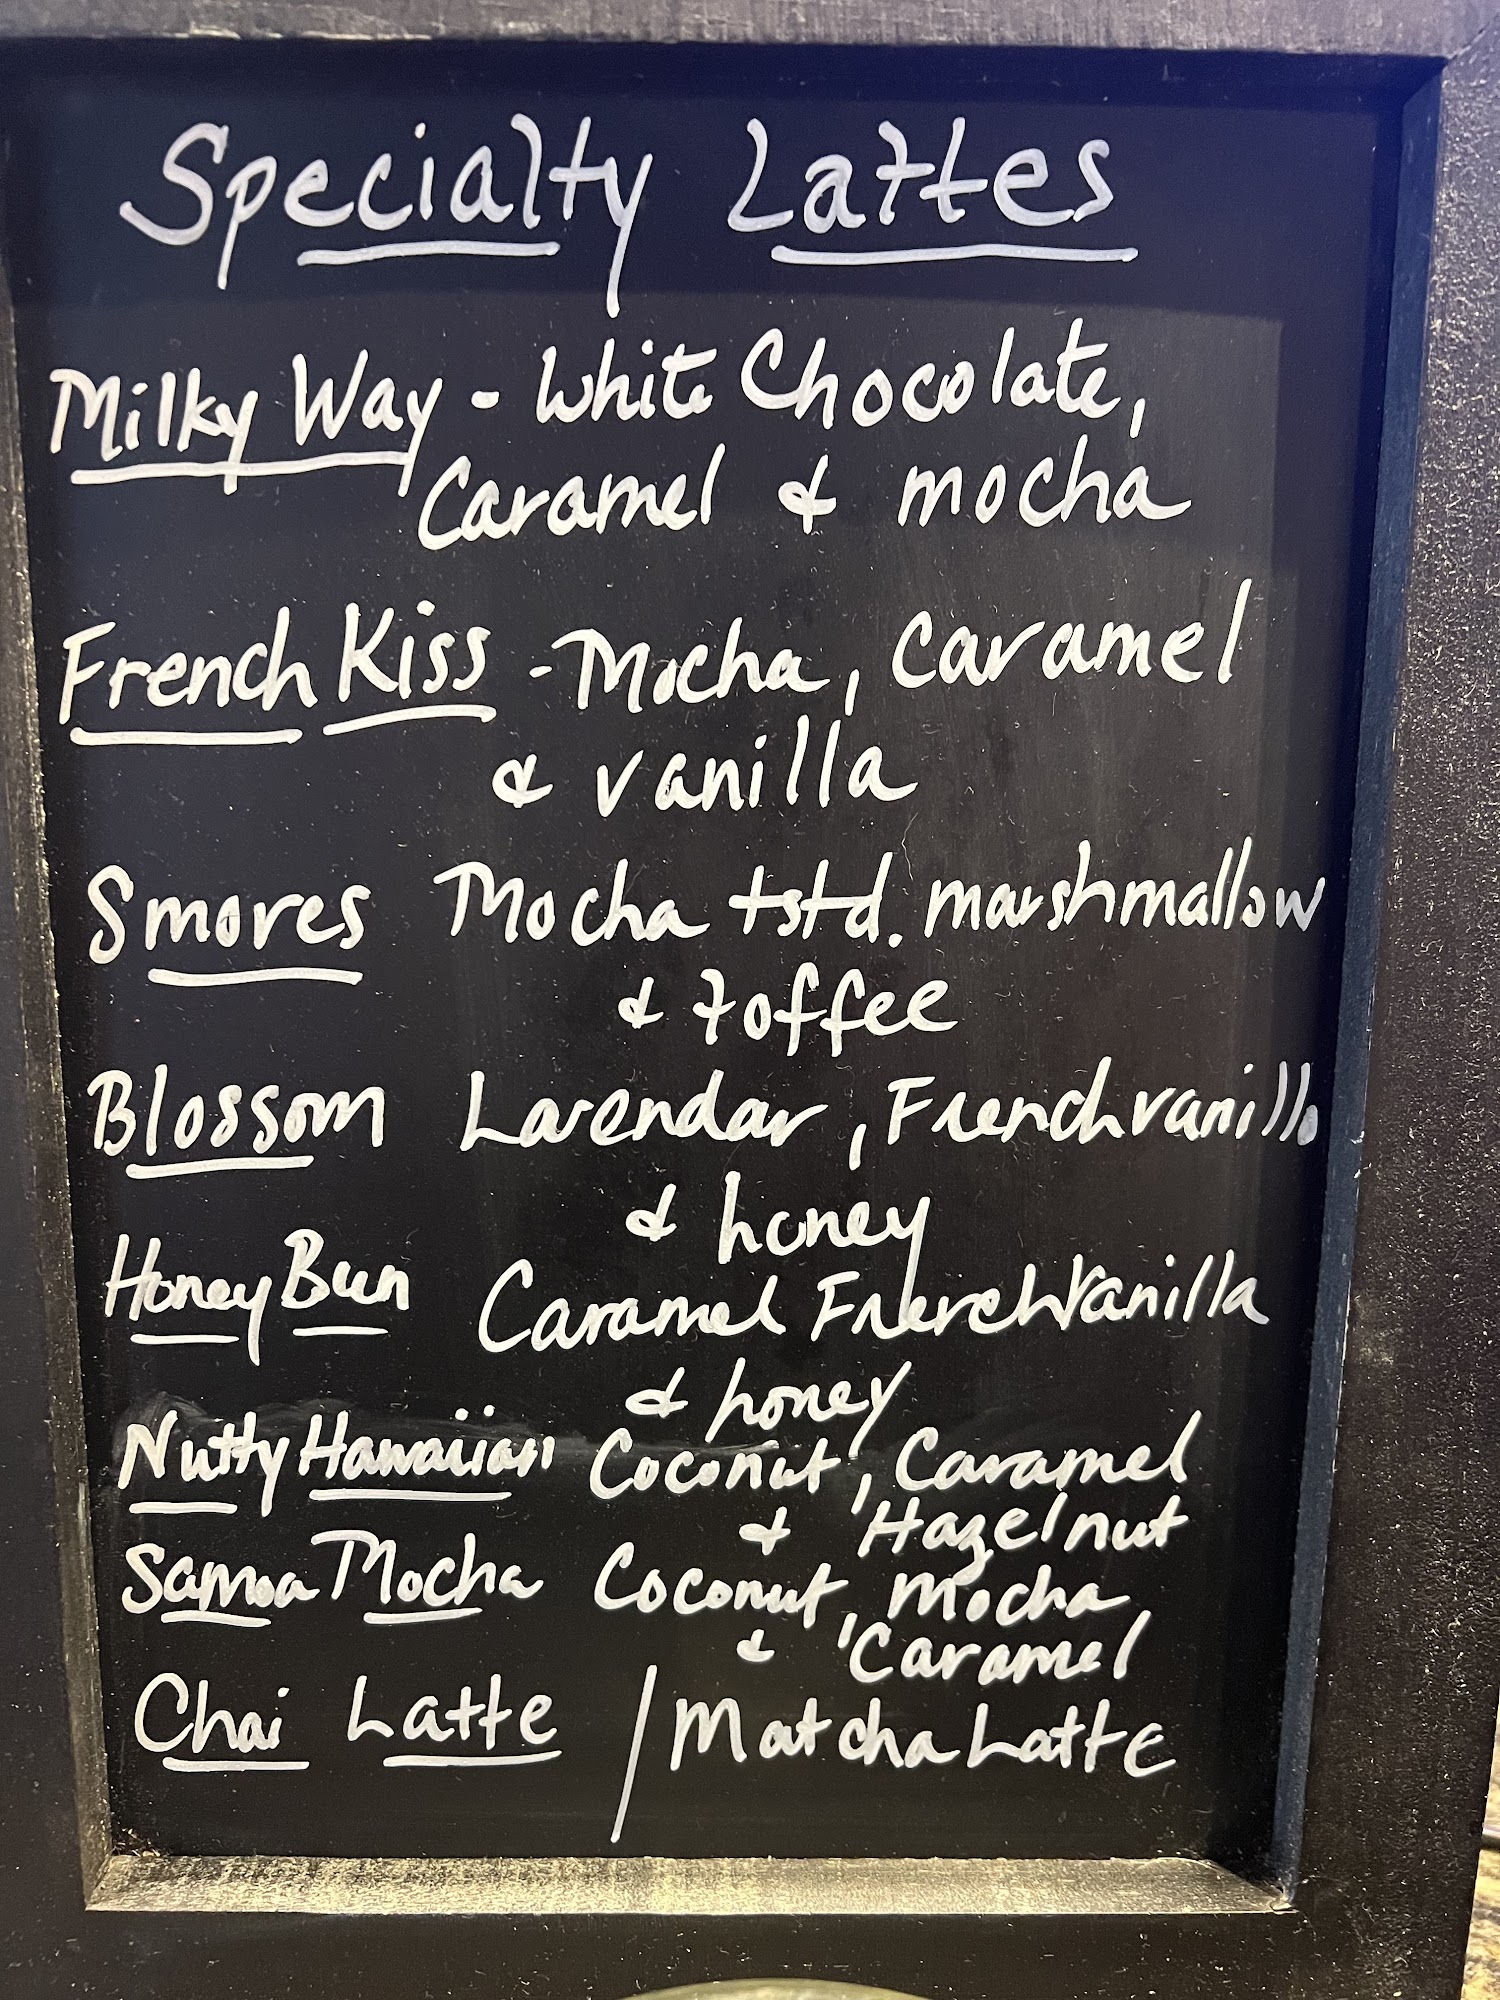 Specialty Lattes
Milky Way - White Chocolate,
Caramel & mocha
French Kiss - Mocha, Caramel
& vanilla
Smores Mocha tstd. marshmallow
& toffee
Blossom Lavendar, French vanilla
& honey
Honey Bun Caramel French Vanilla
& honey
Nutty Hawaiian Coconut, Caramel
& Hazelnut
Samoa Mocha Coconut, Mocha
& Caramel
Chai Latte / Matcha Latte